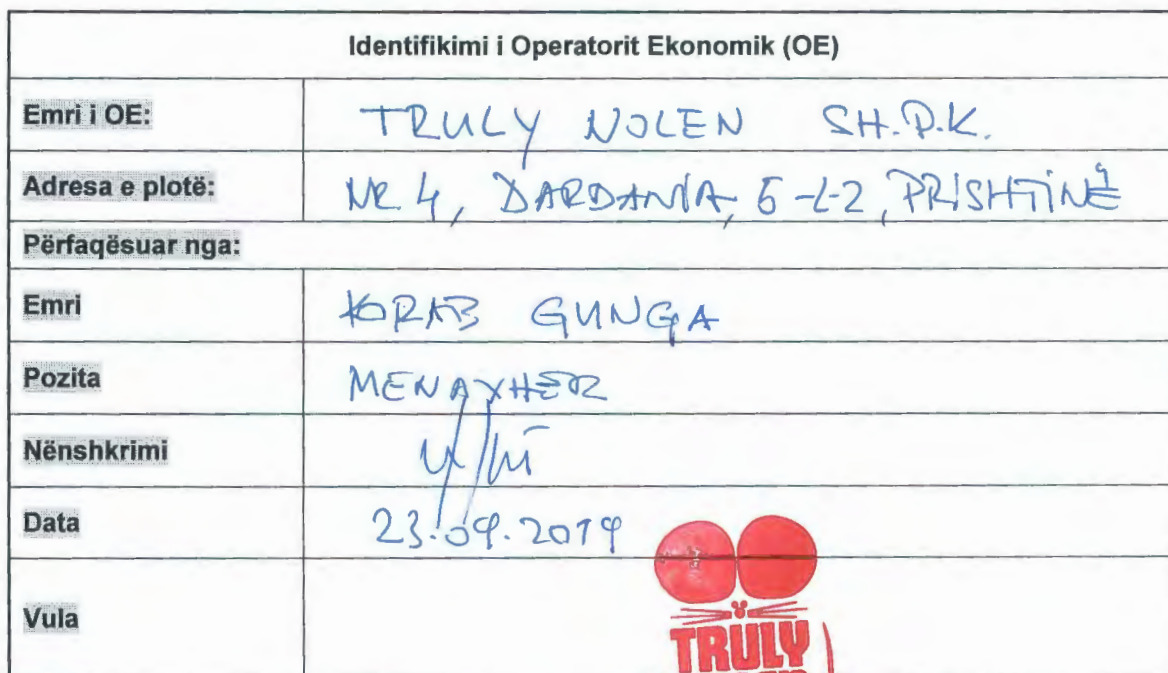 Identifikimi i Operatorit Ekonomik (OE)
Emri i OE: TRULY NOLEN SH.P.K.
Adresa e plotë: NR 4, DARDANIA, 5-L-2, PRISHTINË
Përfaqësuar nga:
Emri KORAB GUNGA
Pozita MENAXHER
Nënshkrimi
Data 23.09.2019
Vula TRULY